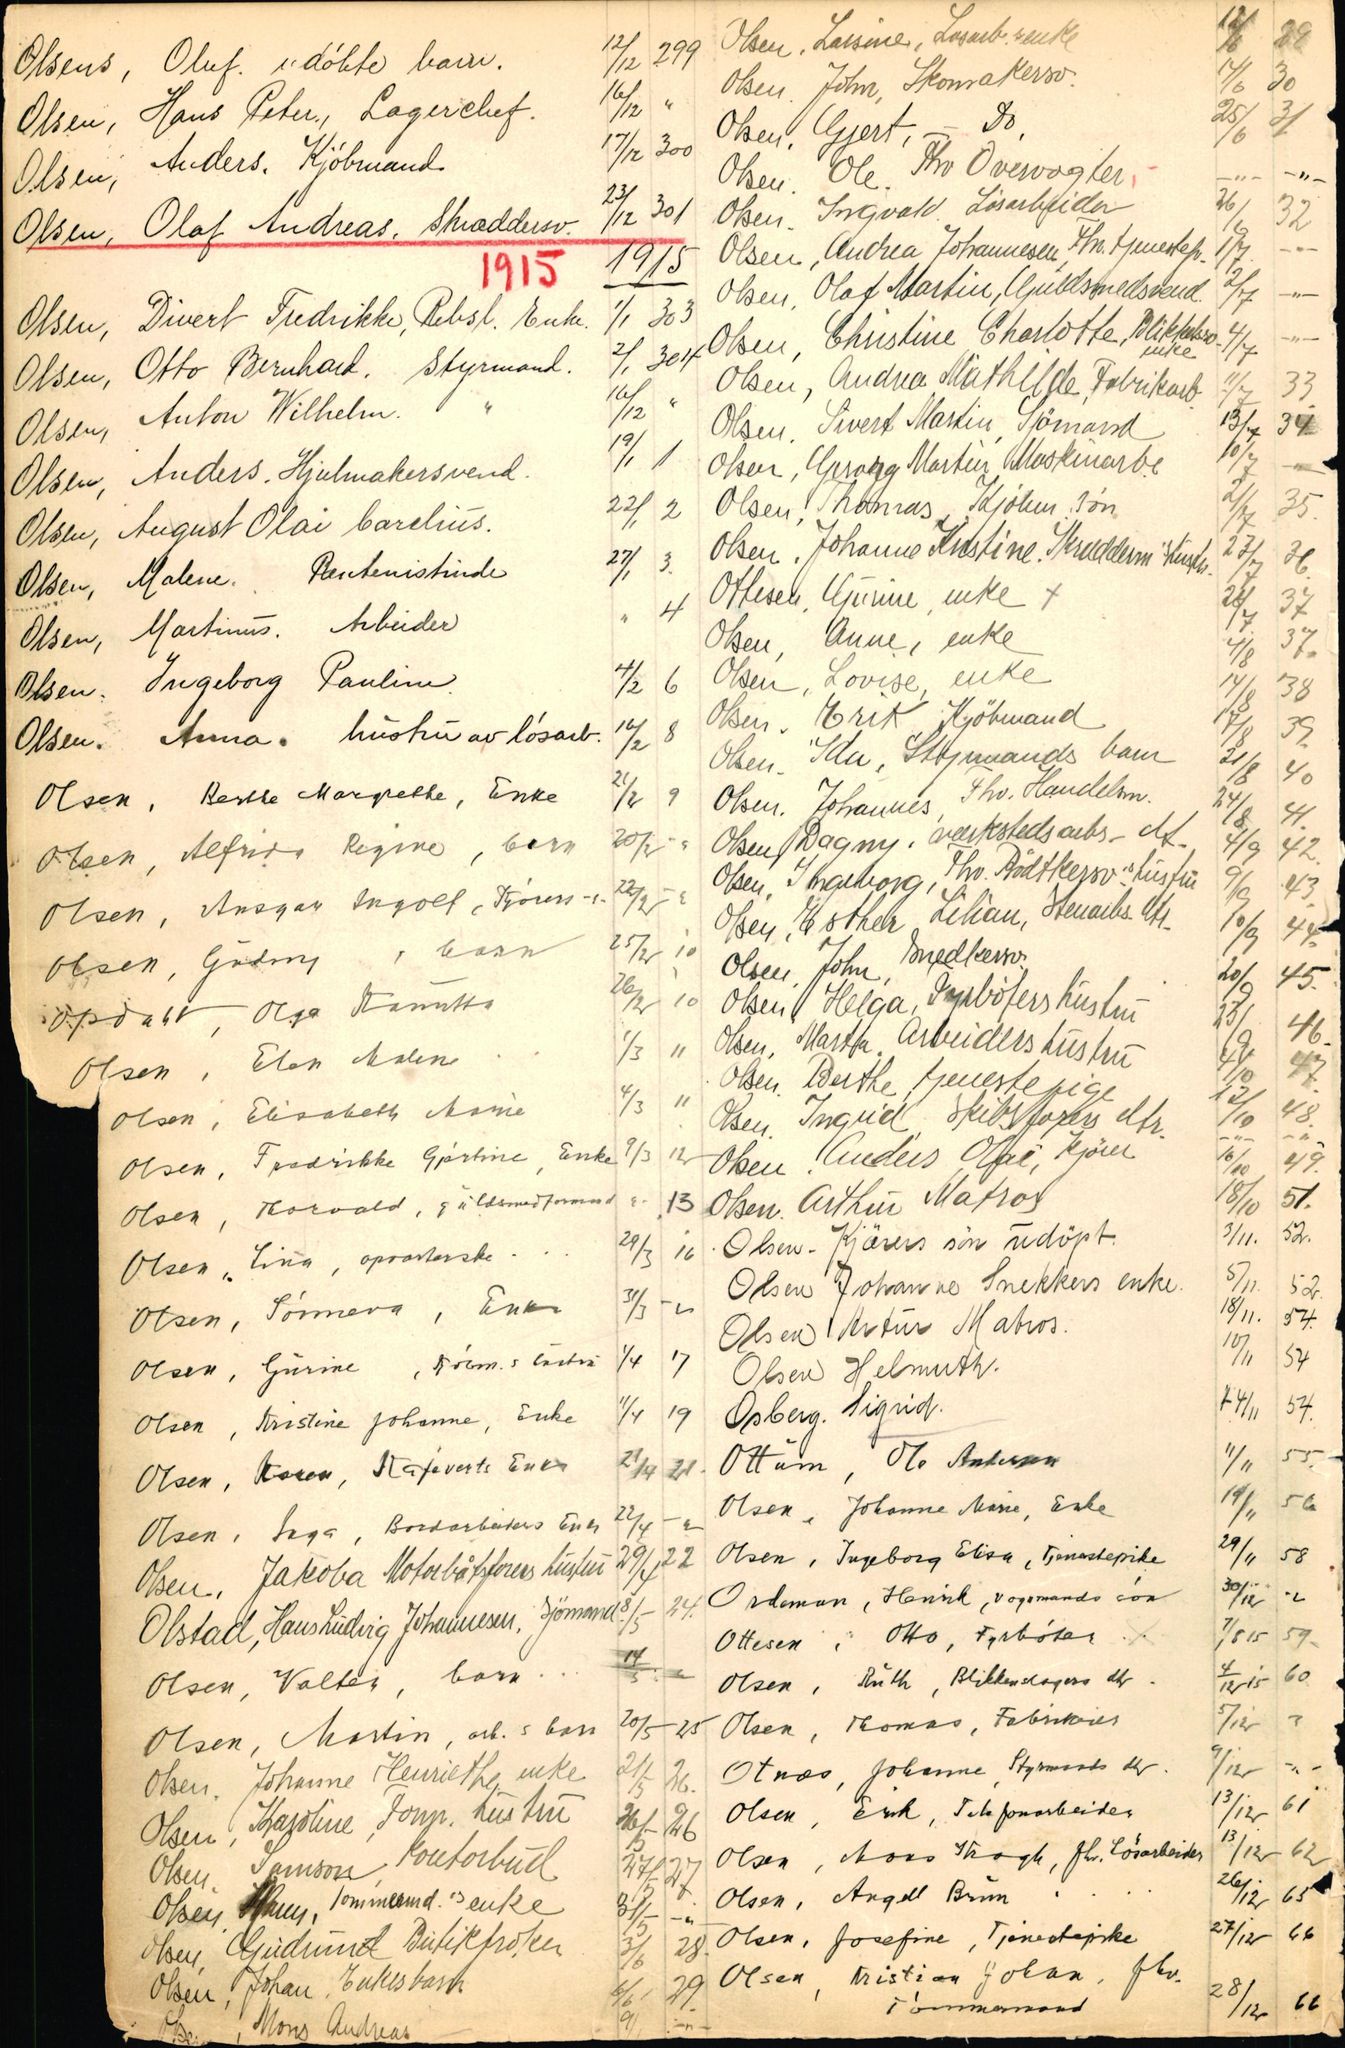 Olsens, Oluf. udöbte barn. 12/12 299
Olsen, Hans Peter., Lagerchef. 16/12 "
Olsen, Anders. Kjöbmand 17/12 300
Olsen, Olaf Andreas. Skræddersv. 23/12 301
1915 1915
Olsen, Divert Fredrikke, Rebsl. Enke. 1/1 303
Olsen, Otto Bernhard. Styrmand. 2/1 304
Olsen, Anton Wilhelm. " 16/12 "
Olsen, Anders. Hjulmakersvend. 19/1 1
Olsen, August Olai Carelius. 22/1 2
Olsen, Malene. Rentenistinde 27/1 3.
Olsen, Martinus. Arbeider " 4
Olsen. Ingeborg Pauline 4/2 6
Olsen. Anna. hustru av lósarb. 16/2 8
Olsen, Berthe Margrethe, Enke 21/2 9
Olsen, Alfrida Regine, barn 20/2 - "
Olsen, Ansgar Ingolf, 22/2 - "
Olsen, Gudny, barn 25/2 10
Opdahl, Olga 26/2 10
Olsen, Elen Malene 1/3 11
Olsen, Elisabeth Marie 4/3 11
Olsen, Fredrikke Gjertine, Enke 9/3 12
Olsen, Thorvald, guldsmedformand " 13
Olsen, Lina, opvarterske 29/3 16
Olsen, Sónneva, Enke 31/3 - "
Olsen, Gurine, 1/4 17
Olsen, Kristine Johanne, Enke 11/4 19
Olsen, Karen, Enke 21/4 21.
Olsen, Inga, Bordarbeiders Enke 22/4 - "
Olsen, Jakoba Motorbåtsförers hustru 29/4 22
Olstad, Hans Ludvig Johannesen, Sjömand 8/5 24.
Olsen, Valter, barn 14/5 - "
Olsen, Martin, arb. s barn 20/5 25
Olsen. Johanne Henriethe enke 21/5 26.
Olsen, Karoline, Tömr. hustru 26/5 26
Olsen. Samson, kontorbud 27/5 27
Olsen, Tömmermd. s enke 31/5 - " -
Olsen, Gudrund Butikfröken 3/6 28.
Olsen, Johan, Enkesbarn 6/6 29.
Olsen, Mons Andreas 9/ - " -
Olsen, Larsine, Løsarb. enke 12/6 29
Olsen. John, Skomakersv. 14/6 30
Olsen. Gjert, - Do, 25/6 31
Olsen. Ole. Fhv Overvogter. - " - - " -
Olsen. Ingvald Lösarbeider 26/6 32
Olsen, Andrea Johannesen, Fhv. tjenestep. 1/7. - " -
Olsen, Olaf Martin, Guldsmedsvend. 2/7 - " -
Olsen, Christine Charlotte, enke 4/7 - " -
Olsen, Andrea Mathilde, Fabrikarb. 11/7 33
Olsen. Sivert Martin, Sjömand 13/7 34
Olsen, Georg Martin Maskinarb. 10/7 -
Olsen, Thomas, Kjöbm. sön 21/7 35.
Olsen, Johanne Kristine. Skrædderm. s hustr. 27/7 36.
Ottesen, Gurine, enke + 28/7 37
Olsen, Anne, enke 4/8 37.
Olsen, Lovise, enke 14/8 38
Olsen. Erik Kjöbmand 17/8 39.
Olsen. Ida, Styrmands barn 21/8 40
Olsen. Johannes, Fhv. Handelsm. 24/8 41.
Olsen Dagny. verkstedsarbs dt. 4/9 42.
Olsen, Ingeborg, Fhv. Bödtkersv. s hustru 9/9 43
Olsen, Esther Lilian, Stenarbs. dtr. 10/9 44.
Olsen, John, Snedkersv. 20/9 45.
Olsen, Helga, Fyrböters hustru 25/9 46.
Olsen, Marta. Arbeiders hustru 4/10 47.
Olsen. Berthe, tjenestepige 12/10 48.
Olsen. Ingrid, Skibsförers dtr. - " - - " -
Olsen. Anders Olai, Kjörer 16/10 49.
Olsen. Arthur Matros 18/10 51.
Olsen - Kjörers sön udöpt. 3/11. 52.
Olsen Johanne Snekkers enke. 5/11 52.
Olsen Artur Matros. 18/11. 54.
Olsen Helmuth. 10/11 54
Osberg. Sigrid. 54.
Ottum, Ole Andersen 11/11 55.
Olsen, Johanne Marie, Enke 19/11 56
Olsen, Ingeborg Elisa, Tjenestepike 29/11 58
Ordeman, Henrik, vognmands sön 30/12 - "
Ottesen, Otto, Fyrböter 7/8 15 59.
Olsen, Ruth, Blikkenslagers dtr. 4/12 15 60
Olsen, Thomas, Fabrikeier 5/12 "
Otnæs, Johanne, Styrmands dtr. 9/12 - " -
Olsen, Erik, Telefonarbeider 13/12 61
Olsen, Mons Krogh, fhv. Lösarbeider 13/12 62
Olsen, Angell Brun 26/12 65
Olsen, Josefine, Tjenestepike 27/12 66
Olsen, Kristian Johan, fhv.
Tömmermand 28/12 66